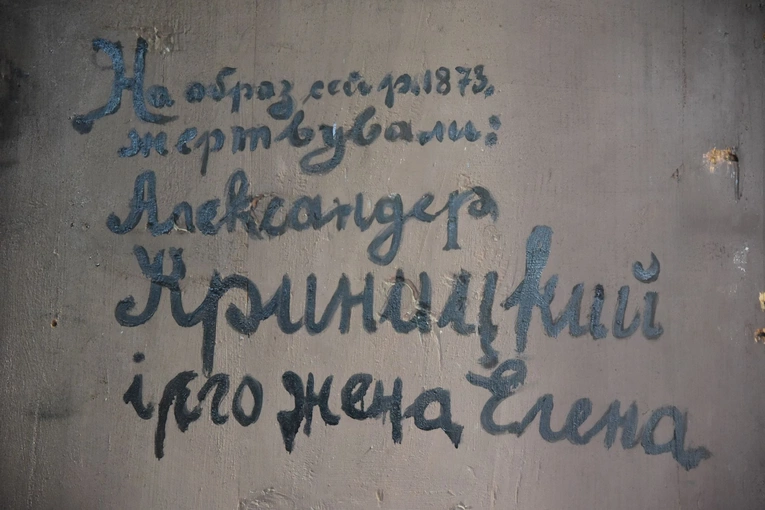 На образ сей р.1873.
жертвували:
Александер
Криницкий
і его жена Елена